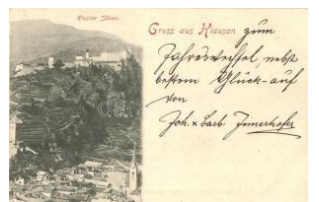 Kloster Säben.
Gruss aus Klausen zum
Jahreswechsel, nebst
bestem Glück-auf
von
Joh. & Barb. Jmerhofer